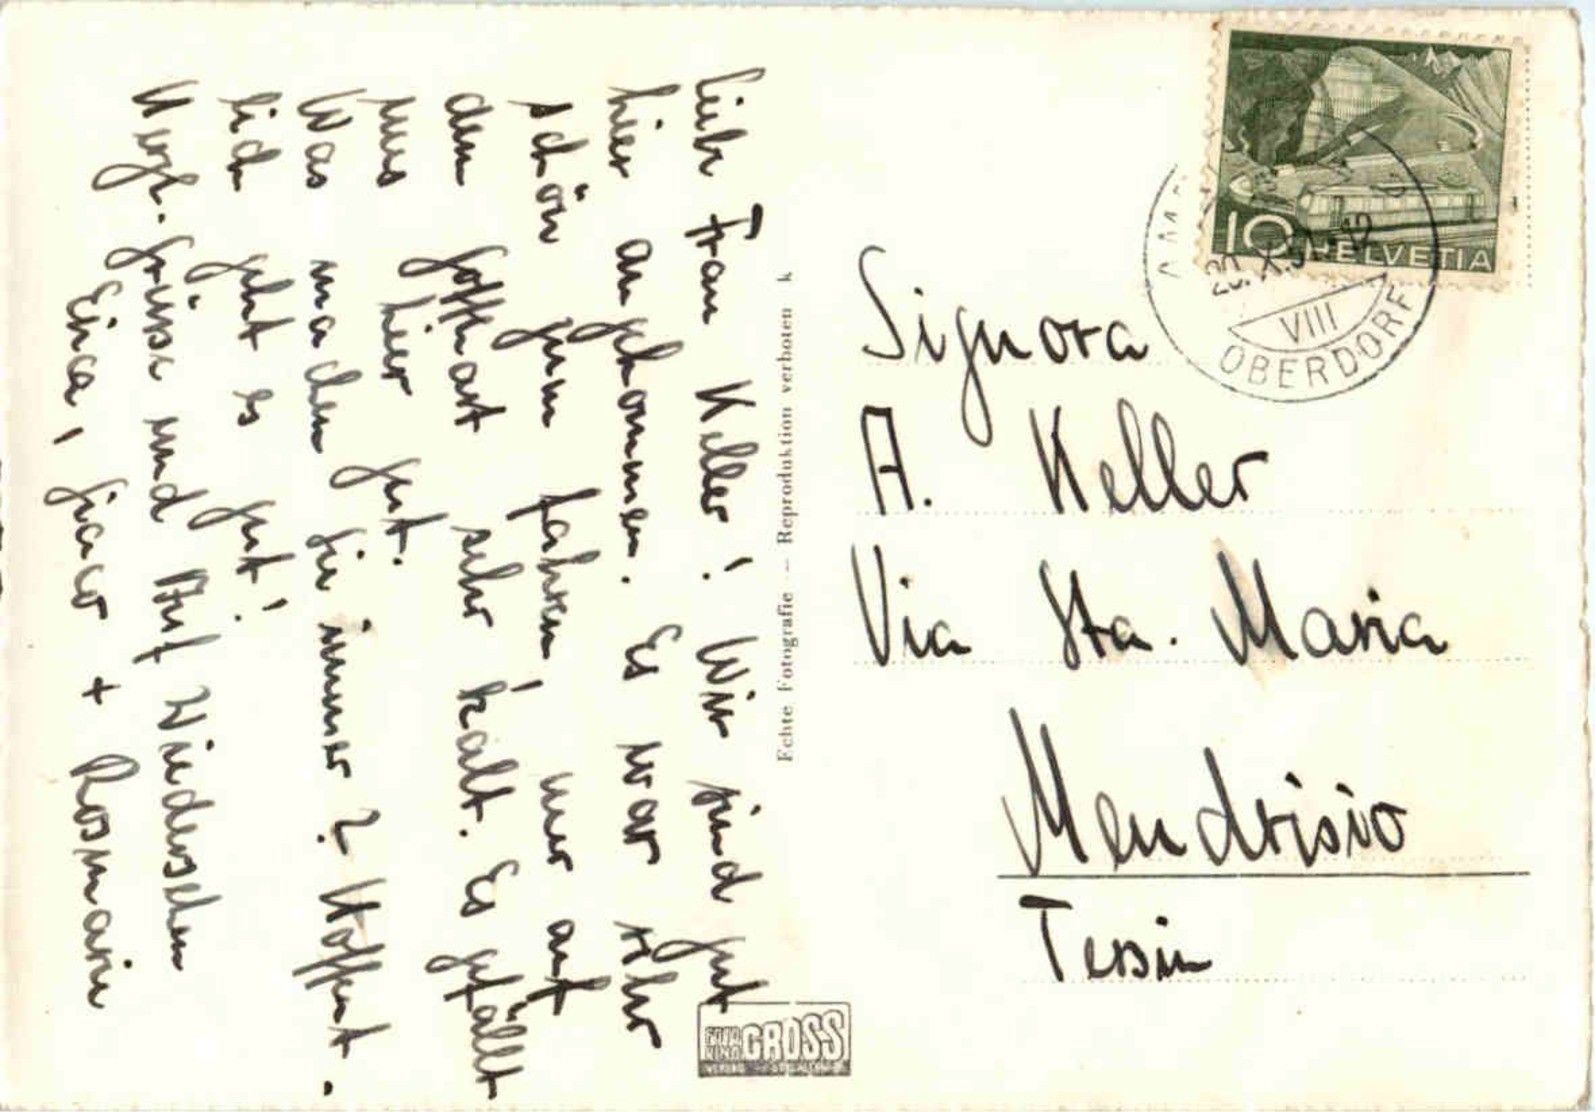 Liebe Frau Keller! Wir sind gut
hier angekommen. Es war sehr
schön zum fahren, nur auf
dem Gotthart sehr kalt. Es gefällt
uns hier gut.
Was machen Sie immer? Hoffent-
lich geht es gut!
Herzl. Grüsse und Auf Wiedersehen
Erica, + Rosmarie
Echte Fotografie – Reproduktion verboten k
FOTO KINO GROSS
10 HELVETIA
VIII
OBERDORF
Signora
A. Keller
Via Sta. Maria
Mendrisio
Tessin